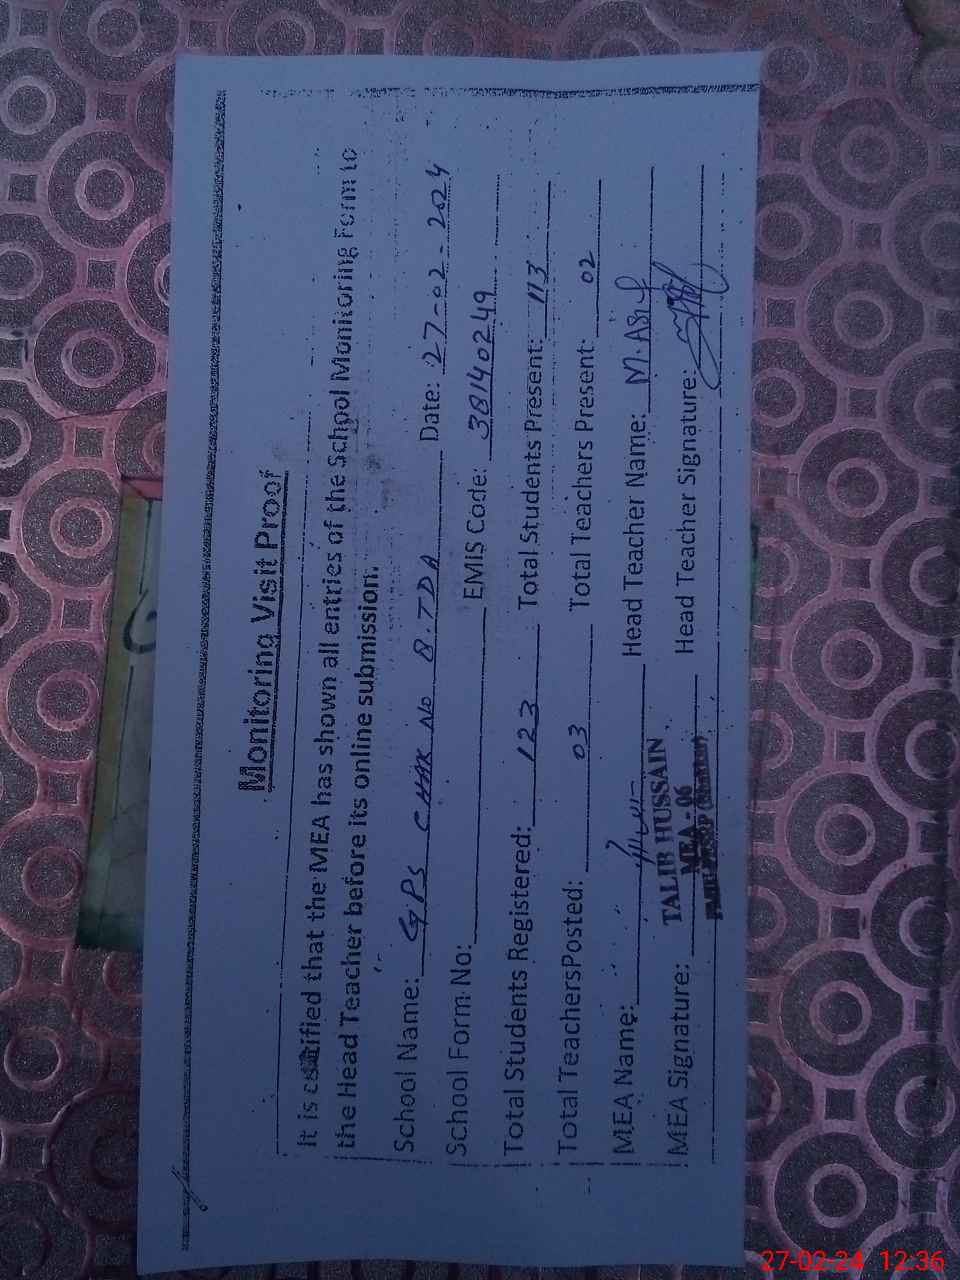 Monitoring Visit Proof
It is certified that the MEA has shown all entries of the School Monitoring Form to
the Head Teacher before its online submission.
School Name: GPS CHAK No 8.TDA Date: 27-02-2024
School Form No: EMIS Code: 38140249
Total Students Registered: 123 Total Students Present: 113
Total Teachers Posted: 03 Total Teachers Present: 02
MEA Name: Head Teacher Name: M. Asif
TALIB HUSSAIN
MEA Signature: MEA - 06 Head Teacher Signature:
27-02-24 12:36